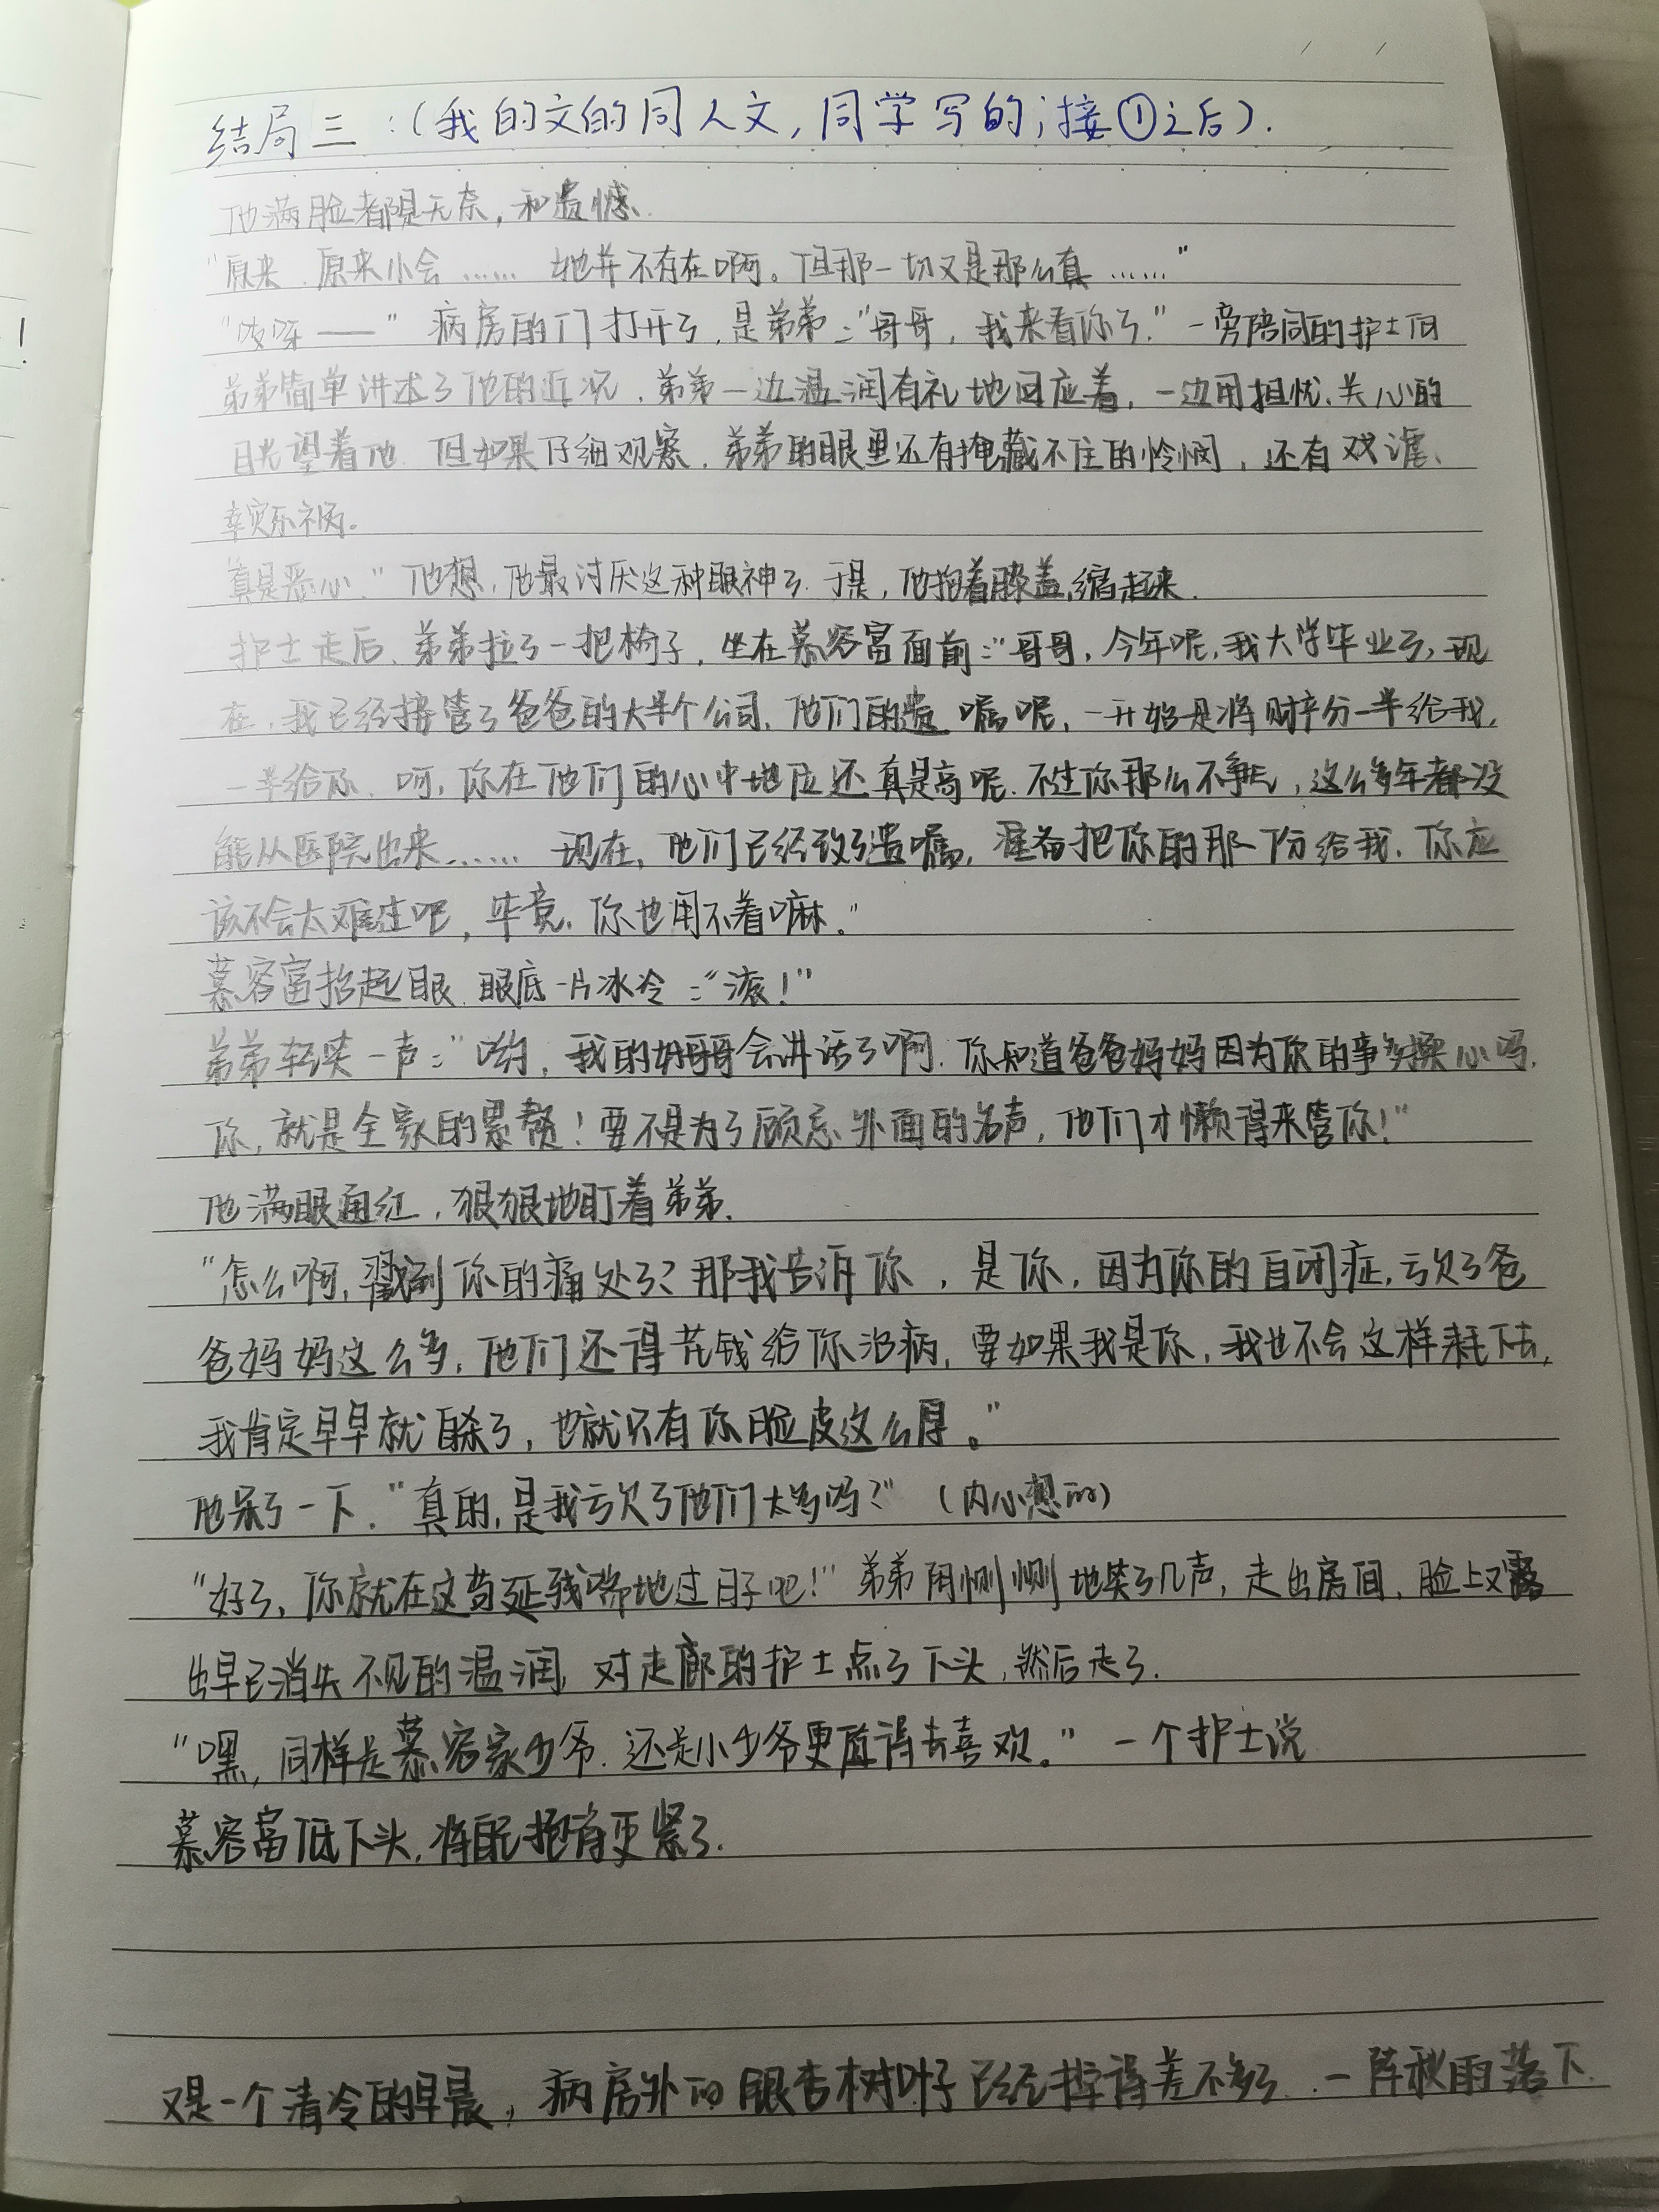 结局三：(我的文的同人文，同学写的；接①之后).
他满脸都是无奈，和遗憾.
"原来.原来小会……她并不存在啊。但那一切又是那么真……"
"吱呀——"病房的门打开了，是弟弟："哥哥，我来看你了."一旁陪同的护士向
弟弟简单讲述了他的近况，弟弟一边温润有礼地回应着，一边用担忧、关心的
目光望着他.但如果仔细观察，弟弟的眼里还有掩藏不住的怜悯，还有戏谑、
幸灾乐祸。
"真是恶心."他想，他最讨厌这种眼神了.于是，他抱着膝盖，缩起来.
护士走后，弟弟拉了一把椅子，坐在慕容富面前："哥哥，今年呢，我大学毕业了，现
在，我已经接管了爸爸的大半个公司，他们的遗嘱呢，一开始是将财产分一半给我，
一半给你.呵，你在他们的心中地位还真是高呢.不过你那么不争气，这么多年都没
能从医院出来……现在，他们已经改了遗嘱，准备把你的那一份给我.你应
该不会太难过吧，毕竟，你也用不着嘛。"
慕容富抬起眼，眼底一片冰冷："滚！"
弟弟轻笑一声："哟，我的好哥哥会讲话了啊.你知道爸爸妈妈因为你的事多操心吗，
你，就是全家的累赘！要不是为了顾忌外面的名声，他们才懒得来管你！"
他满眼通红，狠狠地盯着弟弟.
"怎么啊，戳到你的痛处了？那我告诉你，是你，因为你的自闭症，亏欠了爸
爸妈妈这么多，他们还得花钱给你治病，要如果我是你，我也不会这样耗下去，
我肯定早早就自杀了，也就只有你脸皮这么厚。"
他呆了一下."真的，是我亏欠了他们太多吗？"（内心想的）
"好了，你就在这苟延残喘地过日子吧！"弟弟阴恻恻地笑了几声，走出房间，脸上又露
出早已消失不见的温润，对走廊的护士点了下头，然后走了.
"嘿，同样是慕容家少爷.还是小少爷更值得去喜欢。"一个护士说
慕容富低下头，将自己抱得更紧了.
又是一个清冷的早晨，病房外的银杏树叶子已经掉得差不多了.一阵秋雨落下.